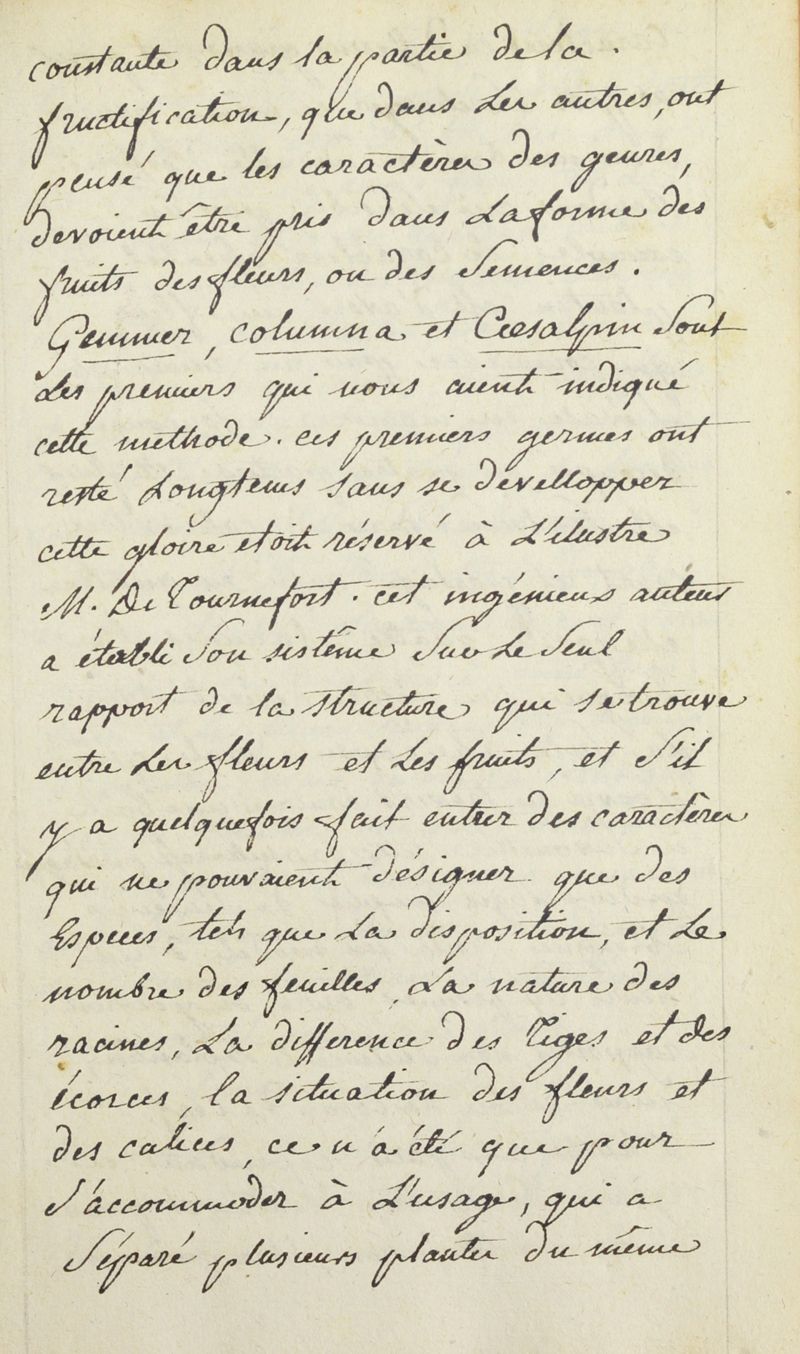 constante dans la partie de la
fructification, que dans les autres, ont
pensé que les caractères des genres,
devoient être pris dans la forme des
fruits des fleurs, ou des semences.
Gemmer, columna et Cœsalpin sont
les premiers qui nous aient indiqué
cette methode. ces premiers germes ont
resté longtems sans se devellopper
cette gloire etoit réservé à l'ilustre
M. De Tournefort. cet ingénieux auteur
a établi son sistême sur le seul
rapport de la structure qui se trouve
entre les fleurs et les fruits, et s'il
y a quelquefois fait entrer des caractères
qui ne pouvaient désigner que des
Especes, tels que la disposition, et le
nombre des feuilles, la nature des
racines, la difference des tiges et des
écorces, la situation des fleurs et
des calices, ce n'a été que pour
s'accommoder à l'usage, qui a
séparé plusieurs plantes du même